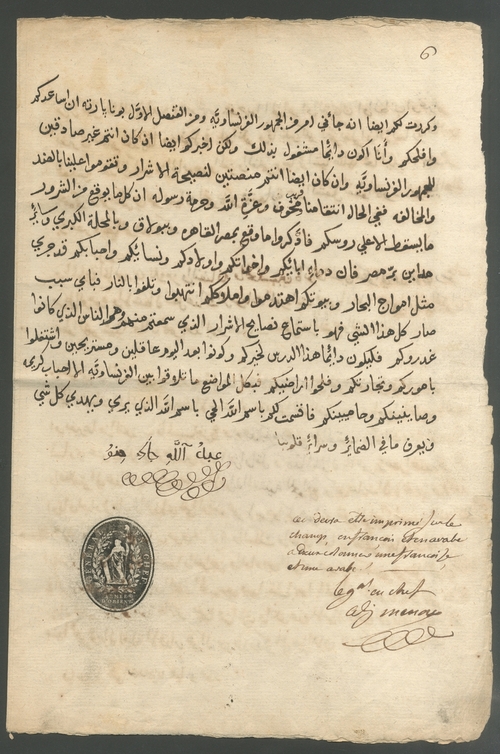 6
وكررت لكم ايضا انه جائني امر من الجمهور الفرنساويه ومن القنصل الاول بونابارته ان اساعدكم
وافلحكم وأنا كون دائما مشغول بذلك ولكن اخبركم ايضا ان كان انتم غير صادقين
للجمهور الفرنساويه وان كان ايضا انتم منصتين لنصيحة الاشرار وتقوموا علينا بالضد
والمخالفه ففي الحال انتقامنا مخوف وعزة الله وحرمة رسوله ان كلما يوقع من الشرور
ما يسقط الا علي روسكم فاذكروا ما وقع بمصر القاهره وببولاق وبالمحلة الكبري وسائر
مداين بر مصر فان دماء ابائكم واخواتكم واولادكم ونسائكم واحبابكم قد جري
مثل امواج البحار وبيوتكم اهتدموا واملوككم انتهبوا وتلفوا بالنار فباي سبب
صار كل هذا الشي فهو باستماع نصايح الاشرار الذي سمعتم منهم وهو الناس الذي كانوا
غدروكم فليكون دائما هذا الدرس لخيركم وكونوا بعد اليوم عاقلين ومستريحين واشتغلوا
باموركم وتجارتكم وفلحوا اراضيكم فبكل المواضع ما تلاقوا بين الفرنساويه الا احباب لكم
وصاينينكم وحاميينكم فاقسمت لكم باسم الله الحي باسم الله الذي يري ويهدي كل شي
ويعرف ما في الضمائر وسرائر قلوبنا
عبد الله جاك منو
GÉNÉRAL EN CHEF
ARMÉE D'ORIENT
ci dessus être imprimé sur le
champ, en françois et en arabe
a deux colonnes une françoise,
et une arabe.
le gal. en chef
abj menou